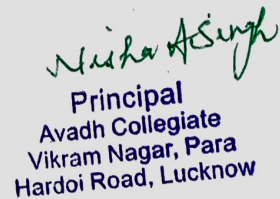 Nisha A Singh
Principal
Avadh Collegiate
Vikram Nagar, Para
Hardoi Road, Lucknow